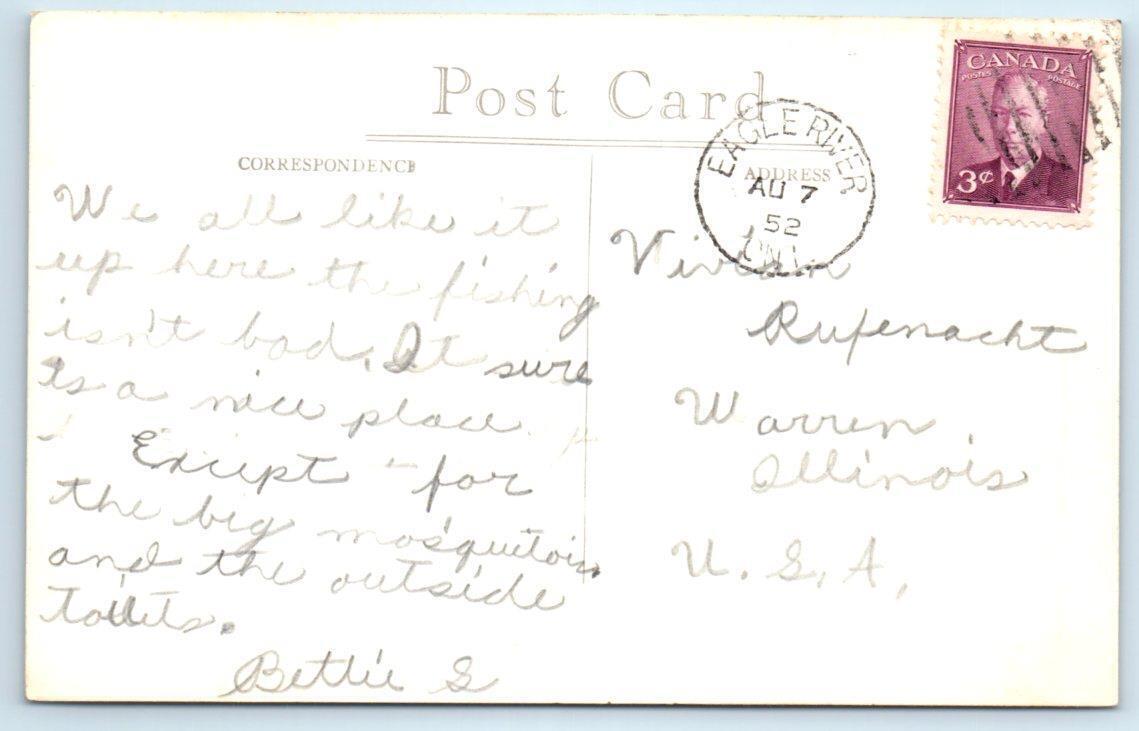 Post Card
CORRESPONDENCE
ADDRESS
EAGLE RIVER
AU 7
52
ONT.
CANADA
POSTES POSTAGE
3¢
We all like it
up here the fishing
isn't bad. It sure
is a nice place.
Except for
the big mosquitois
and the outside
toilets.
Bettie G
Vivian
Rufenacht
Warren
Illinois
U.S.A.